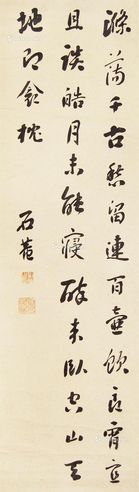 滌蕩千古愁留連百壺飲良宵宜
且談皓月未能寢醉來臥空山天
地即衾枕
石菴